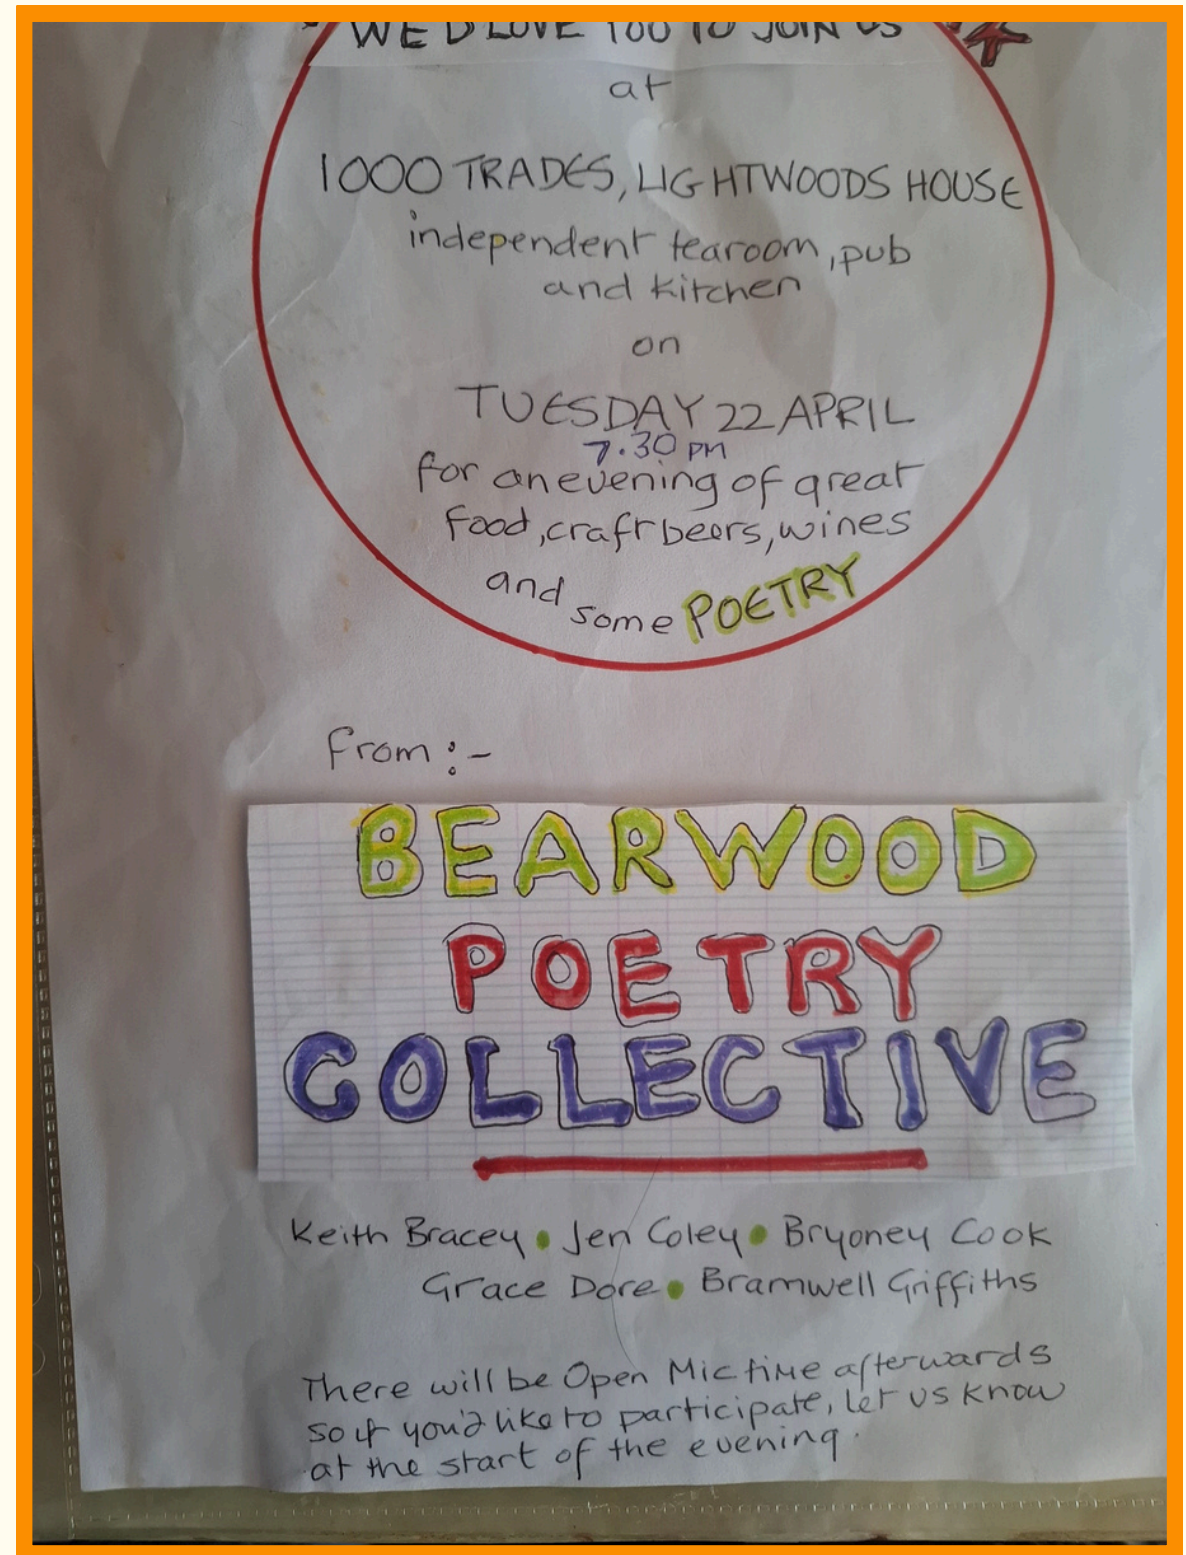 WE'D LOVE YOU TO JOIN US
at
1000 TRADES, LIGHTWOODS HOUSE
independent tearoom, pub
and kitchen
on
TUESDAY 22 APRIL
7.30 pm
for an evening of great
food, craft beers, wines
and some POETRY
from :-
BEARWOOD
POETRY
COLLECTIVE
Keith Bracey • Jen Coley • Bryoney Cook
Grace Dore • Bramwell Griffiths
There will be Open Mic time afterwards
so if you'd like to participate, let us know
at the start of the evening.